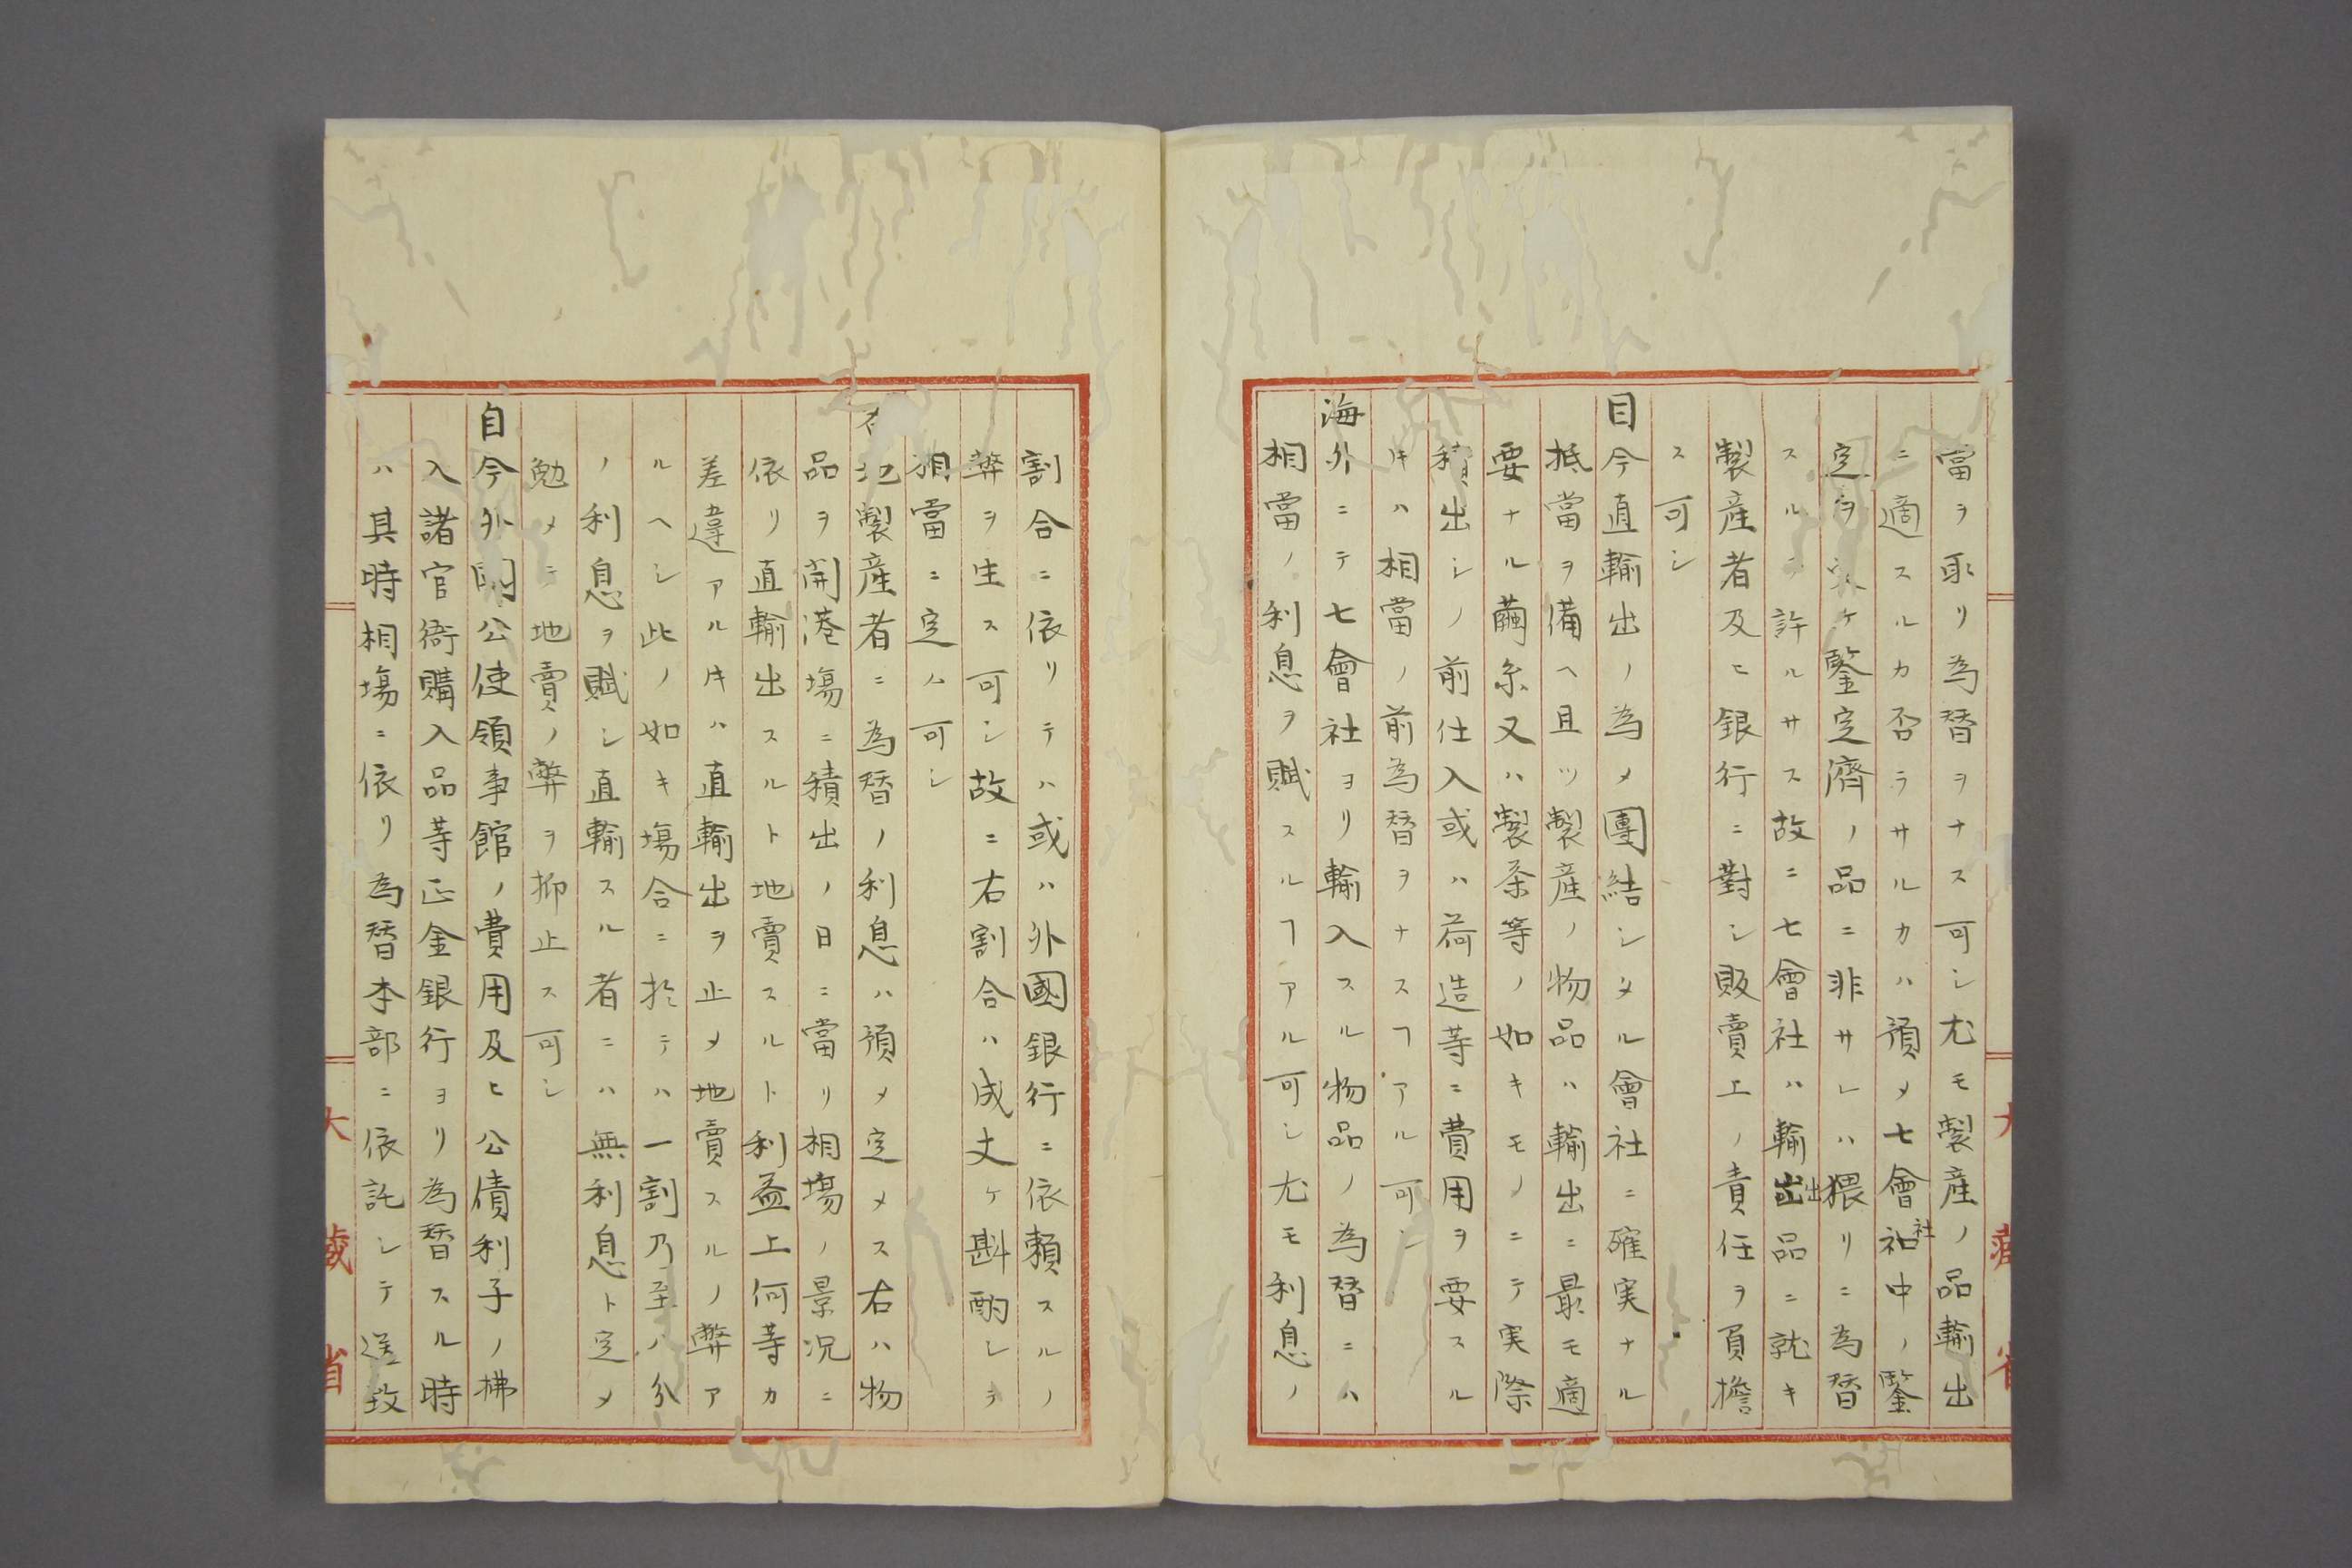 當ヲ取リ為替ヲナス可シ尤モ製産ノ品輸出
ニ適スルカ否ラサルカハ預メ七會社中ノ鑒
定ヲ受ケ鑒定濟ノ品ニ非サレハ猥リニ為替
スルヲ許ルサス故ニ七會社ハ輸出品ニ就キ
製産者及ヒ銀行ニ對シ販賣上ノ責任ヲ負擔
ス可シ
目今直輸出ノ為メ團結シタル會社ニ確実ナル
抵當ヲ備ヘ且ツ製産ノ物品ハ輸出ニ最モ適
要ナル繭糸又ハ製茶等ノ如キモノニテ実際
積出シノ前仕入或ハ荷造等ニ費用ヲ要スル
片ハ相當ノ前為替ヲナスヿアル可シ
海外ニテ七會社ヨリ輸入スル物品ノ為替ニハ
相當ノ利息ヲ賦スルヿアル可シ尤モ利息ノ
割合ニ依リテハ或ハ外國銀行ニ依賴スルノ
弊ヲ生ス可シ故ニ右割合ハ成丈ケ斟酌シテ
相當ニ定ム可シ
各地製産者ニ為替ノ利息ハ預メ定メス右ハ物
品ヲ開港塲ニ積出ノ日ニ當リ相塲ノ景況ニ
依リ直輸出スルト地賣スルト利益上何等カ
差違アル片ハ直輸出ヲ止メ地賣スルノ弊ア
ルヘシ此ノ如キ塲合ニ於テハ一割乃至八分
ノ利息ヲ賦シ直輸スル者ニハ無利息ト定メ
勉メテ地賣ノ弊ヲ抑止ス可シ
自今外國公使領事館ノ費用及ヒ公債利子ノ拂
入諸官衙購入品等正金銀行ヨリ為替スル時
ハ其時相塲ニ依リ為替本部ニ依託シテ送致
大藏省